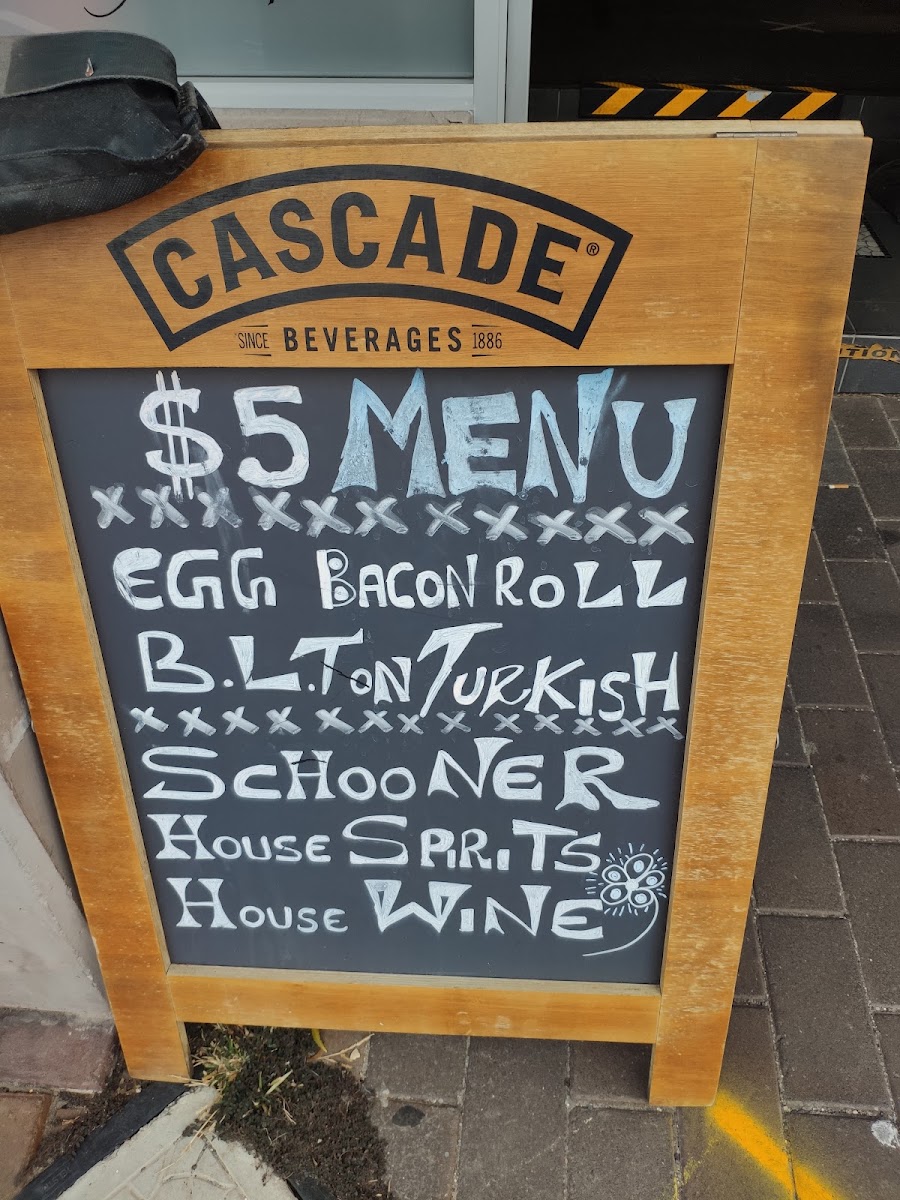 CASCADE®
SINCE BEVERAGES 1886
$5 MENU
XXXXXXXXXXX
EGG BACON ROLL
B.L.T ON TURKISH
XXXXXXXXXXXX
SCHOONER
HOUSE SPIRITS
HOUSE WINE